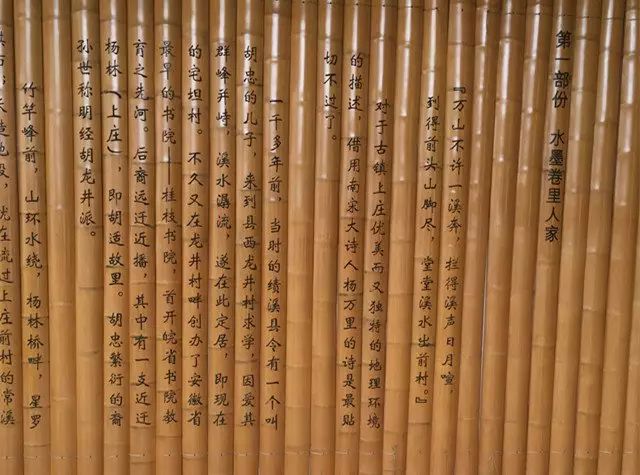 第一部份 水墨卷里人家
『万山不许一溪奔，拦得溪声日月喧，
到得前头山脚尽，堂堂溪水出前村。』
对于古镇上庄优美而又独特的地理环境
的描述，借用南宋大诗人杨万里的诗是最贴
切不过了。
一千多年前，当时的绩溪县令有一个叫
胡忠的儿子，来到县西龙井村求学，因爱其
群峰并峙，溪水潺流，遂在此定居，即现在
的宅坦村。不久又在龙井村畔创办了安徽省
最早的书院——桂枝书院，首开皖省书院教
育之先河。后裔远迁近播，其中有一支近迁
杨林（上庄），即胡适故里。胡忠繁衍的裔
孙世称明经胡龙井派。
竹竿峰前，山环水绕，杨林桥畔，星罗
在流过上庄前村的常溪